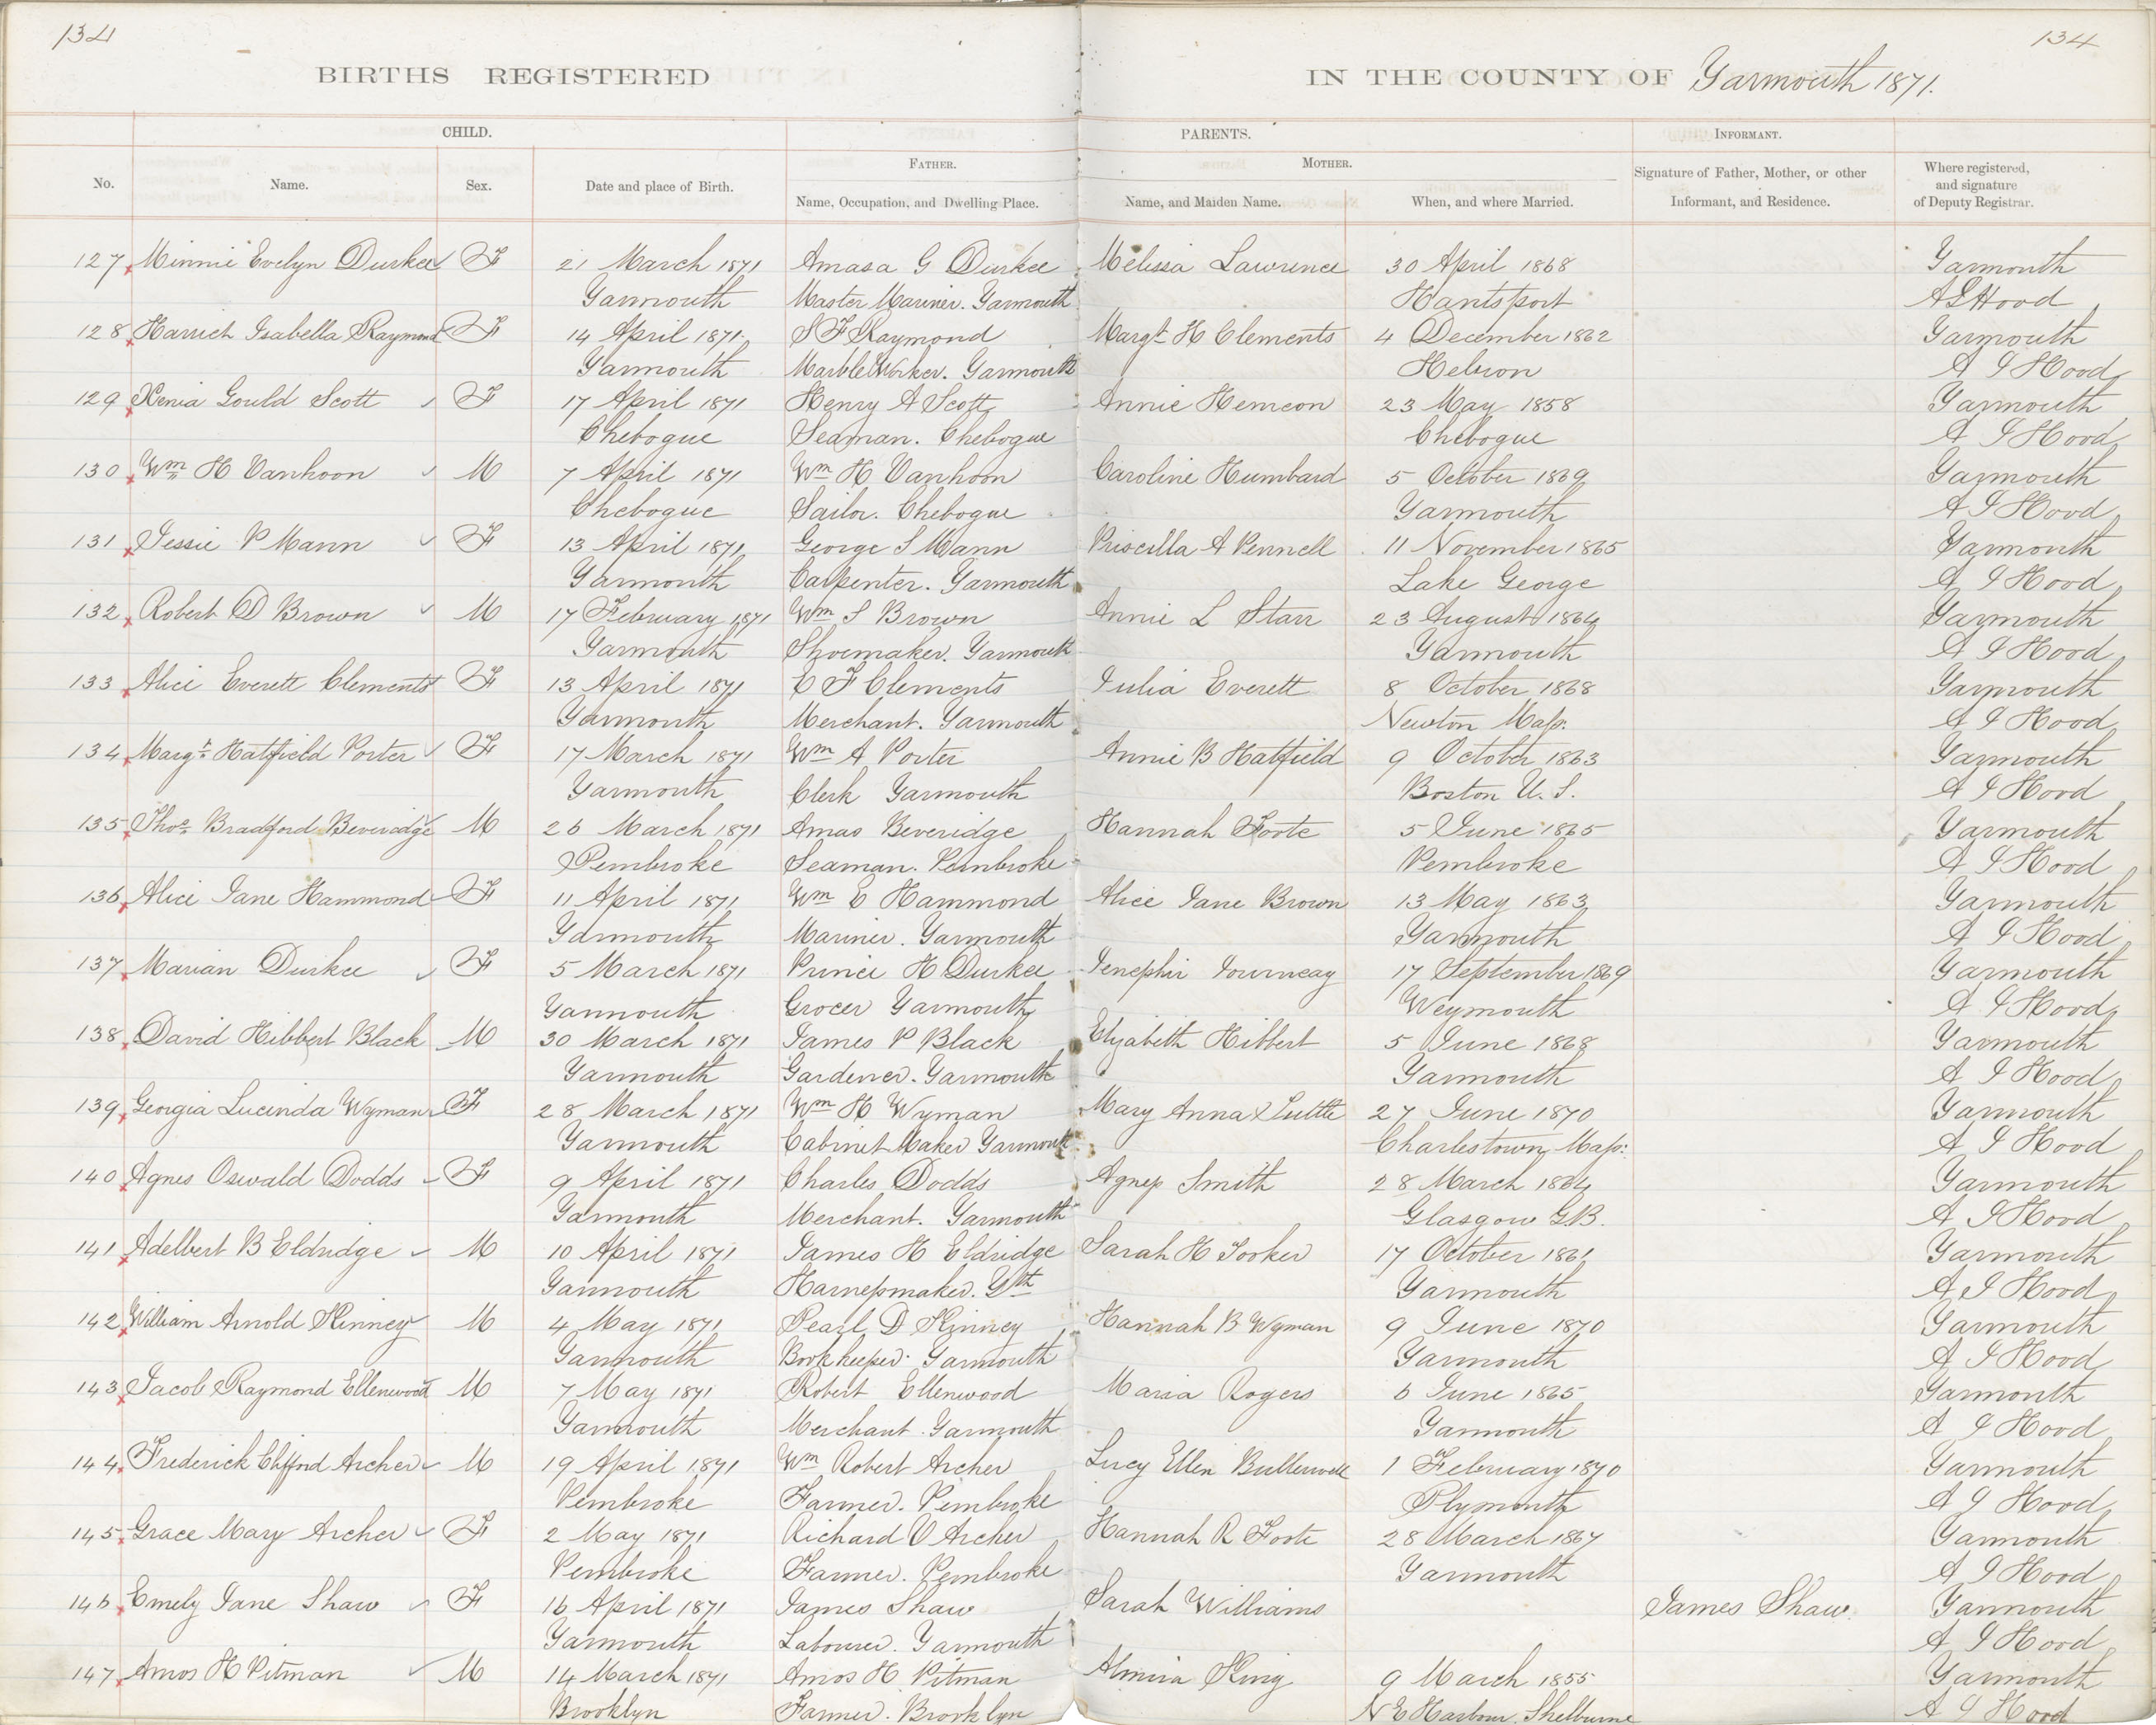 134
134
BIRTHS REGISTERED IN THE COUNTY OF Yarmouth 1871.
CHILD. PARENTS. INFORMANT.
FATHER. MOTHER.
No. Name. Sex. Date and place of Birth. Name, Occupation, and Dwelling Place. Name, and Maiden Name. When, and where Married. Signature of Father, Mother, or other Informant, and Residence. Where registered, and signature of Deputy Registrar.
127 Minnie Evelyn Durkee F 21 March 1871 Amasa G Durkee Melissa Lawrence 30 April 1868 Yarmouth
Yarmouth Master Mariner. Yarmouth Hantsport A I Hood
128 Harriet Isabella Raymond F 14 April 1871 S F Raymond Margt H Clements 4 December 1862 Yarmouth
Yarmouth Marble Worker. Yarmouth Hebron A I Hood
129 Xenia Gould Scott F 17 April 1871 Henry A Scott Annie Hemeon 23 May 1858 Yarmouth
Chebogue Seaman. Chebogue Chebogue A I Hood
130 Wm H Vanhoon M 7 April 1871 Wm H Vanhoon Caroline Humbard 5 October 1869 Yarmouth
Chebogue Sailor. Chebogue Yarmouth A I Hood
131 Jessie P Mann F 13 April 1871 George S Mann Priscilla A Pennell 11 November 1865 Yarmouth
Yarmouth Carpenter. Yarmouth Lake George A I Hood
132 Robert D Brown M 17 February 1871 Wm S Brown Annie L Starr 23 August 1864 Yarmouth
Yarmouth Shoemaker. Yarmouth Yarmouth A I Hood
133 Alice Everett Clements F 13 April 1871 E F Clements Julia Everett 8 October 1868 Yarmouth
Yarmouth Merchant. Yarmouth Newton Mass. A I Hood
134 Margt Hatfield Porter F 17 March 1871 Wm A Porter Annie B Hatfield 9 October 1863 Yarmouth
Yarmouth Clerk Yarmouth Boston U. S. A I Hood
135 Thos Bradford Beveridge M 26 March 1871 Amas Beveridge Hannah Foote 5 June 1865 Yarmouth
Pembroke Seaman. Pembroke Pembroke A I Hood
136 Alice Jane Hammond F 11 April 1871 Wm E Hammond Alice Jane Brown 13 May 1863 Yarmouth
Yarmouth Mariner. Yarmouth Yarmouth A I Hood
137 Marian Durkee F 5 March 1871 Prince H Durkee 17 September 1869 Yarmouth
Yarmouth Grocer Yarmouth Weymouth A I Hood
138 David Hibbert Black M 30 March 1871 James P Black Elizabeth Hibbert 5 June 1868 Yarmouth
Yarmouth Gardener. Yarmouth Yarmouth A I Hood
139 Georgia Lucinda Wyman F 28 March 1871 Wm H Wyman Mary Anna Tuttle 27 June 1870 Yarmouth
Yarmouth Cabinet Maker Yarmouth Charlestown Mass: A I Hood
140 Agnes Oswald Dodds F 9 April 1871 Charles Dodds Agness Smith 28 March 1864 Yarmouth
Yarmouth Merchant. Yarmouth Glasgow G.B. A I Hood
141 Adelbert B Eldridge M 10 April 1871 James H Eldridge Sarah H Tooker 17 October 1861 Yarmouth
Yarmouth Harnessmaker. Yth Yarmouth A I Hood
142 William Arnold Kinney M 4 May 1871 Pearl D Kinney Hannah B Wyman 9 June 1870 Yarmouth
Yarmouth Bookkeeper. Yarmouth Yarmouth A I Hood
143 Jacob Raymond Ellenwood M 7 May 1871 Robert Ellenwood Maria Rogers 6 June 1865 Yarmouth
Yarmouth Merchant. Yarmouth Yarmouth A I Hood
144 Frederick Clifford Archer M 19 April 1871 Wm Robert Archer Lucy Ellen Bullerwell 1 February 1870 Yarmouth
Pembroke Farmer. Pembroke Plymouth A I Hood
145 Grace Mary Archer F 2 May 1871 Richard V Archer Hannah R Foote 28 March 1867 Yarmouth
Pembroke Farmer. Pembroke Yarmouth A I Hood
146 Emely Jane Shaw F 16 April 1871 James Shaw Sarah Williams James Shaw. Yarmouth
Yarmouth Labourer. Yarmouth A I Hood
147 Amos H Pitman M 14 March 1871 Amos H Pitman Almira King 9 March 1855 Yarmouth
Brooklyn Farmer. Brooklyn N E Harbour. Shelburne A I Hood